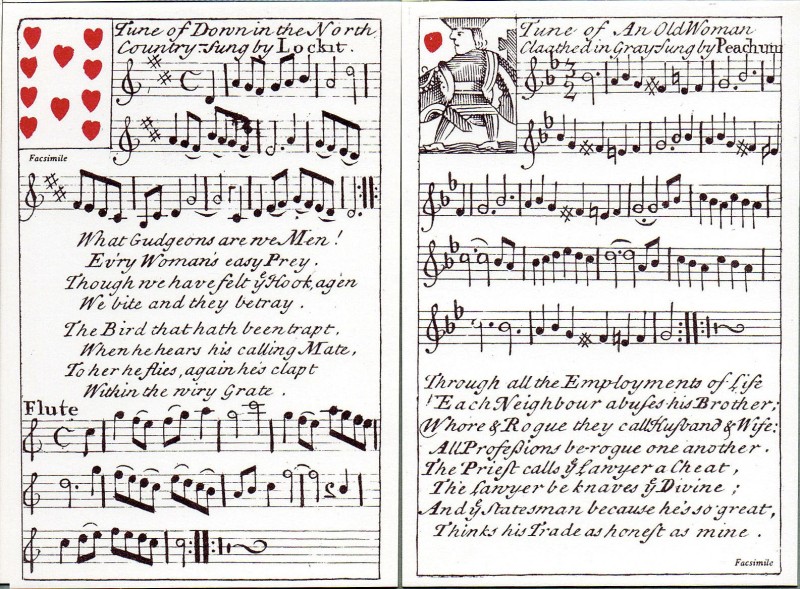 Tune of Down in the North
Country. Sung by Lockit.
Facsimile
What Gudgeons are we Men!
Ev'ry Woman's easy Prey.
Though we have felt ẙ Hook, agen
We bite and they betray.
The Bird that hath been trapt,
When he hears his calling Mate,
To her he flies, again he's clapt
Within the wiry Grate.
Flute
Tune of An Old Woman
Claathed in Gray. Sung by Peachum
3
2
Through all the Employments of Life
Each Neighbour abuſes his Brother;
Whore & Rogue they call Huſband & Wife:
All Profeſsions be-rogue one another.
The Prieſt calls ẙ Lawyer a Cheat,
The Lawyer be knaves ẙ Divine;
And ẙ Statesman because he's so great,
Thinks his Trade as honeſt as mine.
Facsimile